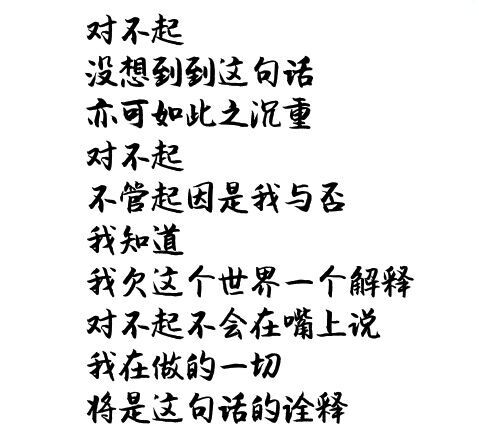 对不起
没想到到这句话
亦可如此之沉重
对不起
不管起因是我与否
我知道
我欠这个世界一个解释
对不起不会在嘴上说
我在做的一切
将是这句话的诠释